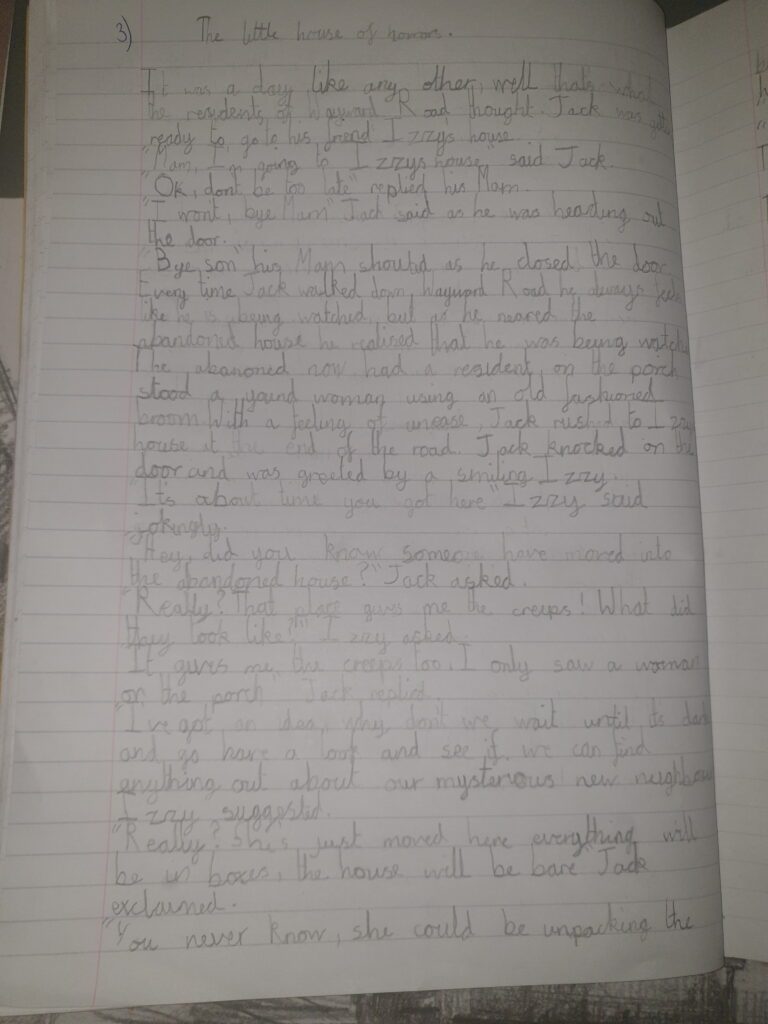 3) The little house of horrors.
It was a day like any other, well thats what
the residents of Wayward Road thought. Jack was
ready to go to his friend Izzys house.
"Mam, Im going to Izzys house, said Jack.
"Ok, dont be too late" replied his Mam.
"I won't, bye Mam" Jack said as he was heading out
the door.
"Bye son" his Mam shouted as he closed the door
Every time Jack walked down Wayward Road he always feels
like he is being watched, but as he neared the
abandoned house he realised that he was being watch
The abanoned now had a resident, on the porch
stood a yound woman using an old fashioned
broom. With a feeling of unease, Jack rushed to Izzy
house at the end of the road. Jack knocked on the
door and was greeted by a smiling Izzy.
"Its about time you got here" Izzy said
jokingly.
"Hey, did you know someone have moved into
the abandoned house?" Jack asked.
"Really? That place gives me the creeps! What did
they look like?" Izzy asked.
"It gives me the creeps too. I only saw a woman
on the porch" Jack replied.
"I've got an idea, why don't we wait until its dark
and go have a look and see if we can find
anything out about our mysterious new neighbou
Izzy suggested.
"Really? She's just moved here everything will
be in boxes, the house will be bare" Jack
exclaimed.
"You never know, she could be unpacking the